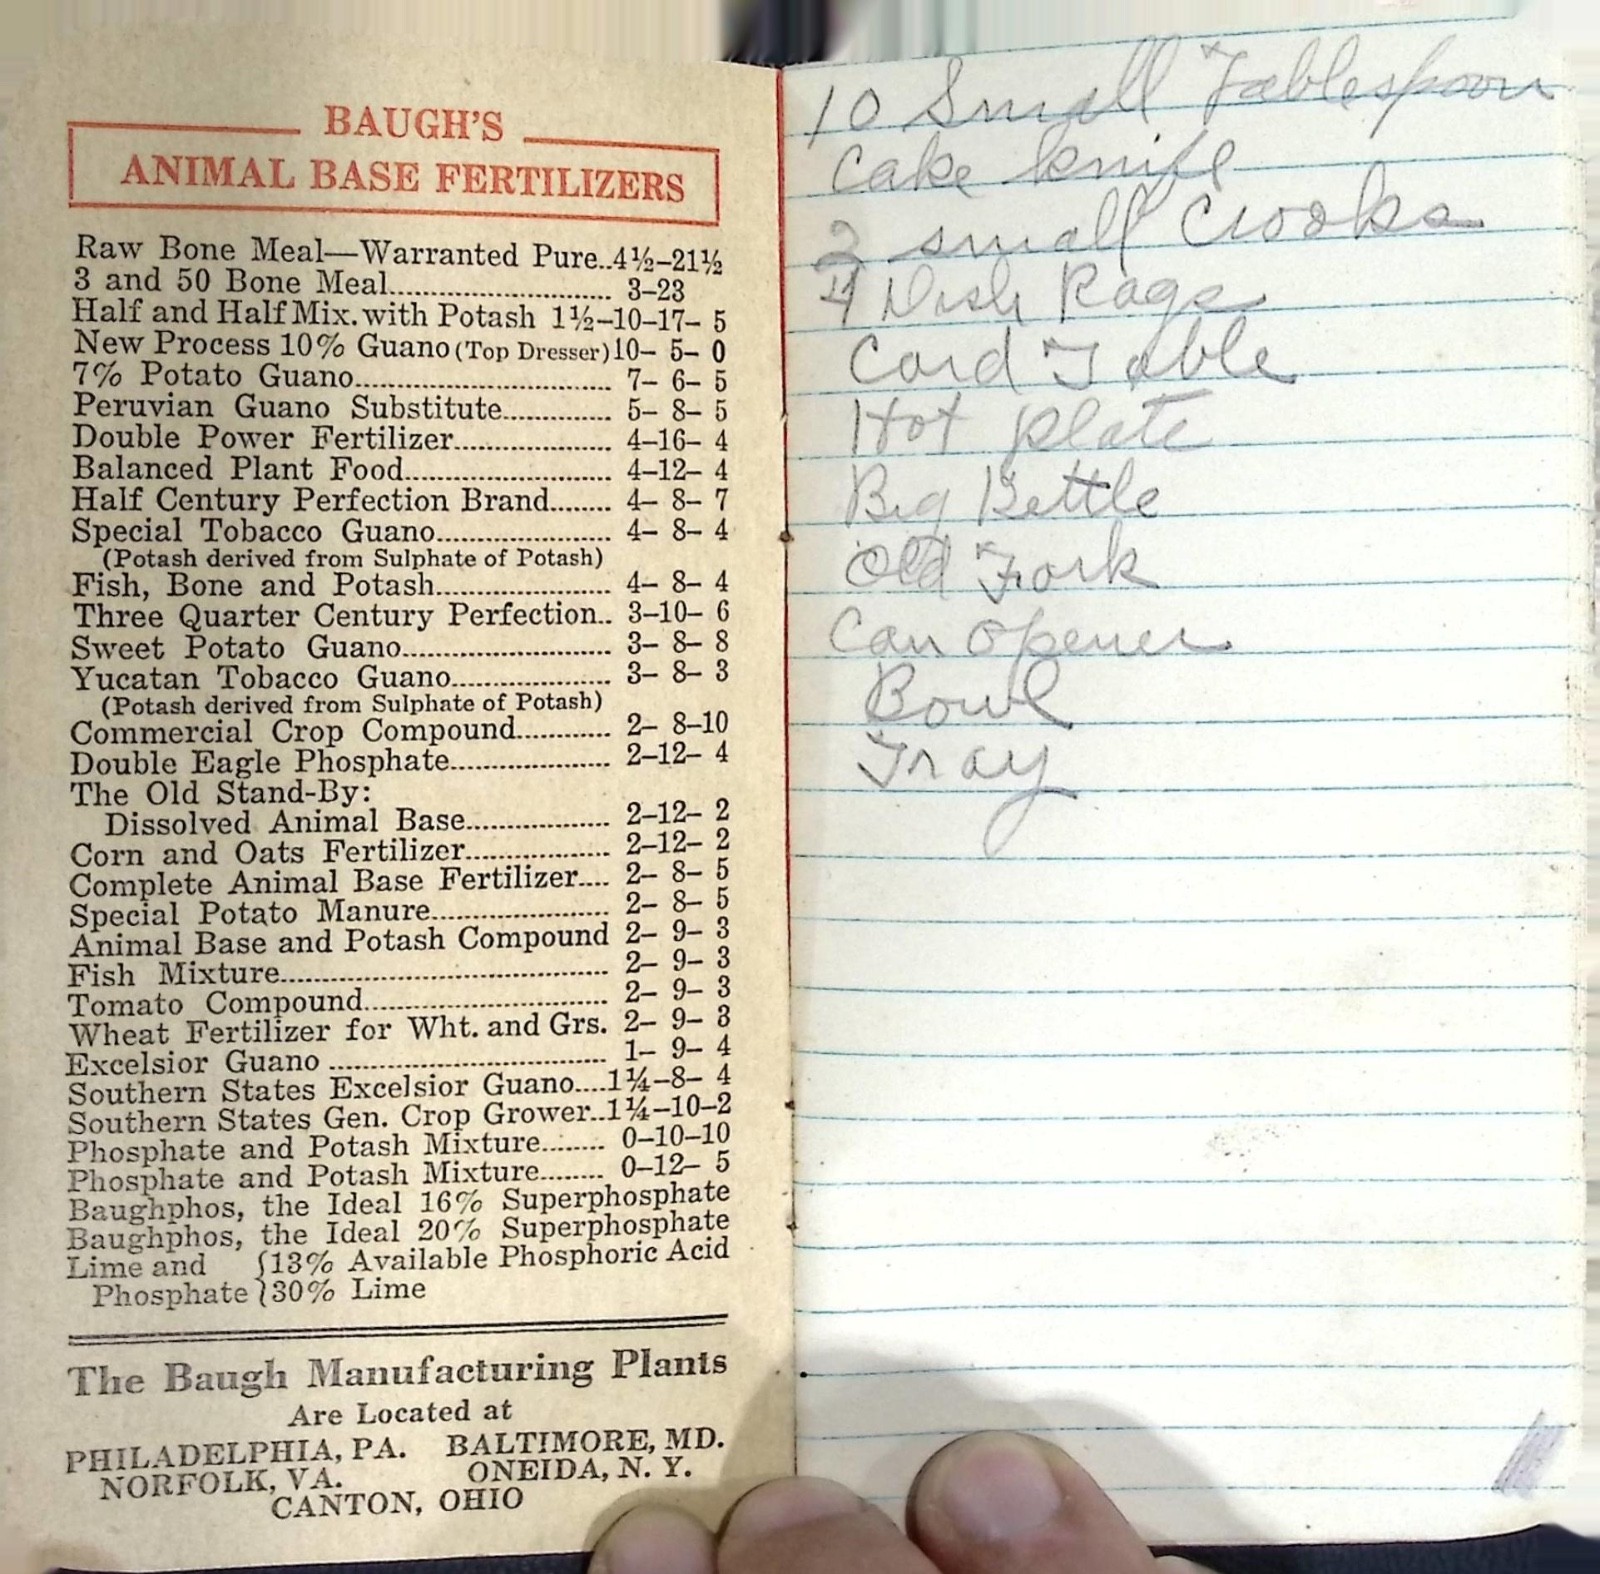 BAUGH'S
ANIMAL BASE FERTILIZERS
Raw Bone Meal—Warranted Pure..4½–21½
3 and 50 Bone Meal............................ 3–23
Half and Half Mix. with Potash 1½–10–17– 5
New Process 10% Guano (Top Dresser) 10– 5– 0
7% Potato Guano................................ 7– 6– 5
Peruvian Guano Substitute.............. 5– 8– 5
Double Power Fertilizer.................... 4–16– 4
Balanced Plant Food.......................... 4–12– 4
Half Century Perfection Brand........ 4– 8– 7
Special Tobacco Guano...................... 4– 8– 4
(Potash derived from Sulphate of Potash)
Fish, Bone and Potash...................... 4– 8– 4
Three Quarter Century Perfection.. 3–10– 6
Sweet Potato Guano.......................... 3– 8– 8
Yucatan Tobacco Guano.................... 3– 8– 3
(Potash derived from Sulphate of Potash)
Commercial Crop Compound............ 2– 8–10
Double Eagle Phosphate.................... 2–12– 4
The Old Stand-By:
Dissolved Animal Base.................. 2–12– 2
Corn and Oats Fertilizer.................. 2–12– 2
Complete Animal Base Fertilizer.... 2– 8– 5
Special Potato Manure...................... 2– 8– 5
Animal Base and Potash Compound 2– 9– 3
Fish Mixture........................................ 2– 9– 3
Tomato Compound.............................. 2– 9– 3
Wheat Fertilizer for Wht. and Grs. 2– 9– 3
Excelsior Guano .................................. 1– 9– 4
Southern States Excelsior Guano....1¼–8– 4
Southern States Gen. Crop Grower..1¼–10–2
Phosphate and Potash Mixture........ 0–10–10
Phosphate and Potash Mixture........ 0–12– 5
Baughphos, the Ideal 16% Superphosphate
Baughphos, the Ideal 20% Superphosphate
Lime and {13% Available Phosphoric Acid
Phosphate }30% Lime
The Baugh Manufacturing Plants
Are Located at
PHILADELPHIA, PA. BALTIMORE, MD.
NORFOLK, VA. ONEIDA, N. Y.
CANTON, OHIO
10 Small Tablespoon
Cake knife
small Crooks
4 Dish Rags
Card Table
Hot plate
Big Kettle
Old Fork
Can opener
Bowl
Tray